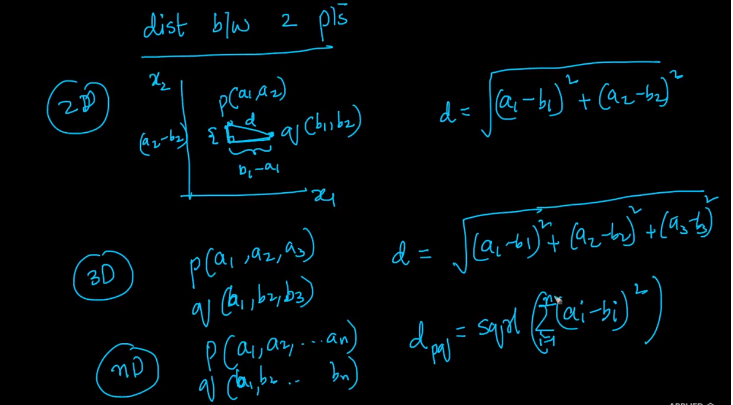 dist b/w 2 pts
2D
x₂
p(a₁,a₂)
d
q(b₁,b₂)
(a₂-b₂)
b₁-a₁
x₁
d = √((a₁-b₁)² + (a₂-b₂)²)
3D
p(a₁,a₂,a₃)
q(b₁,b₂,b₃)
d = √((a₁-b₁)² + (a₂-b₂)² + (a₃-b₃)²)
nD
p(a₁,a₂,...aₙ)
q(b₁,b₂.. bₙ)
d_pq = sqrt(∑ⁿᵢ₌₁(aᵢ-bᵢ)²)